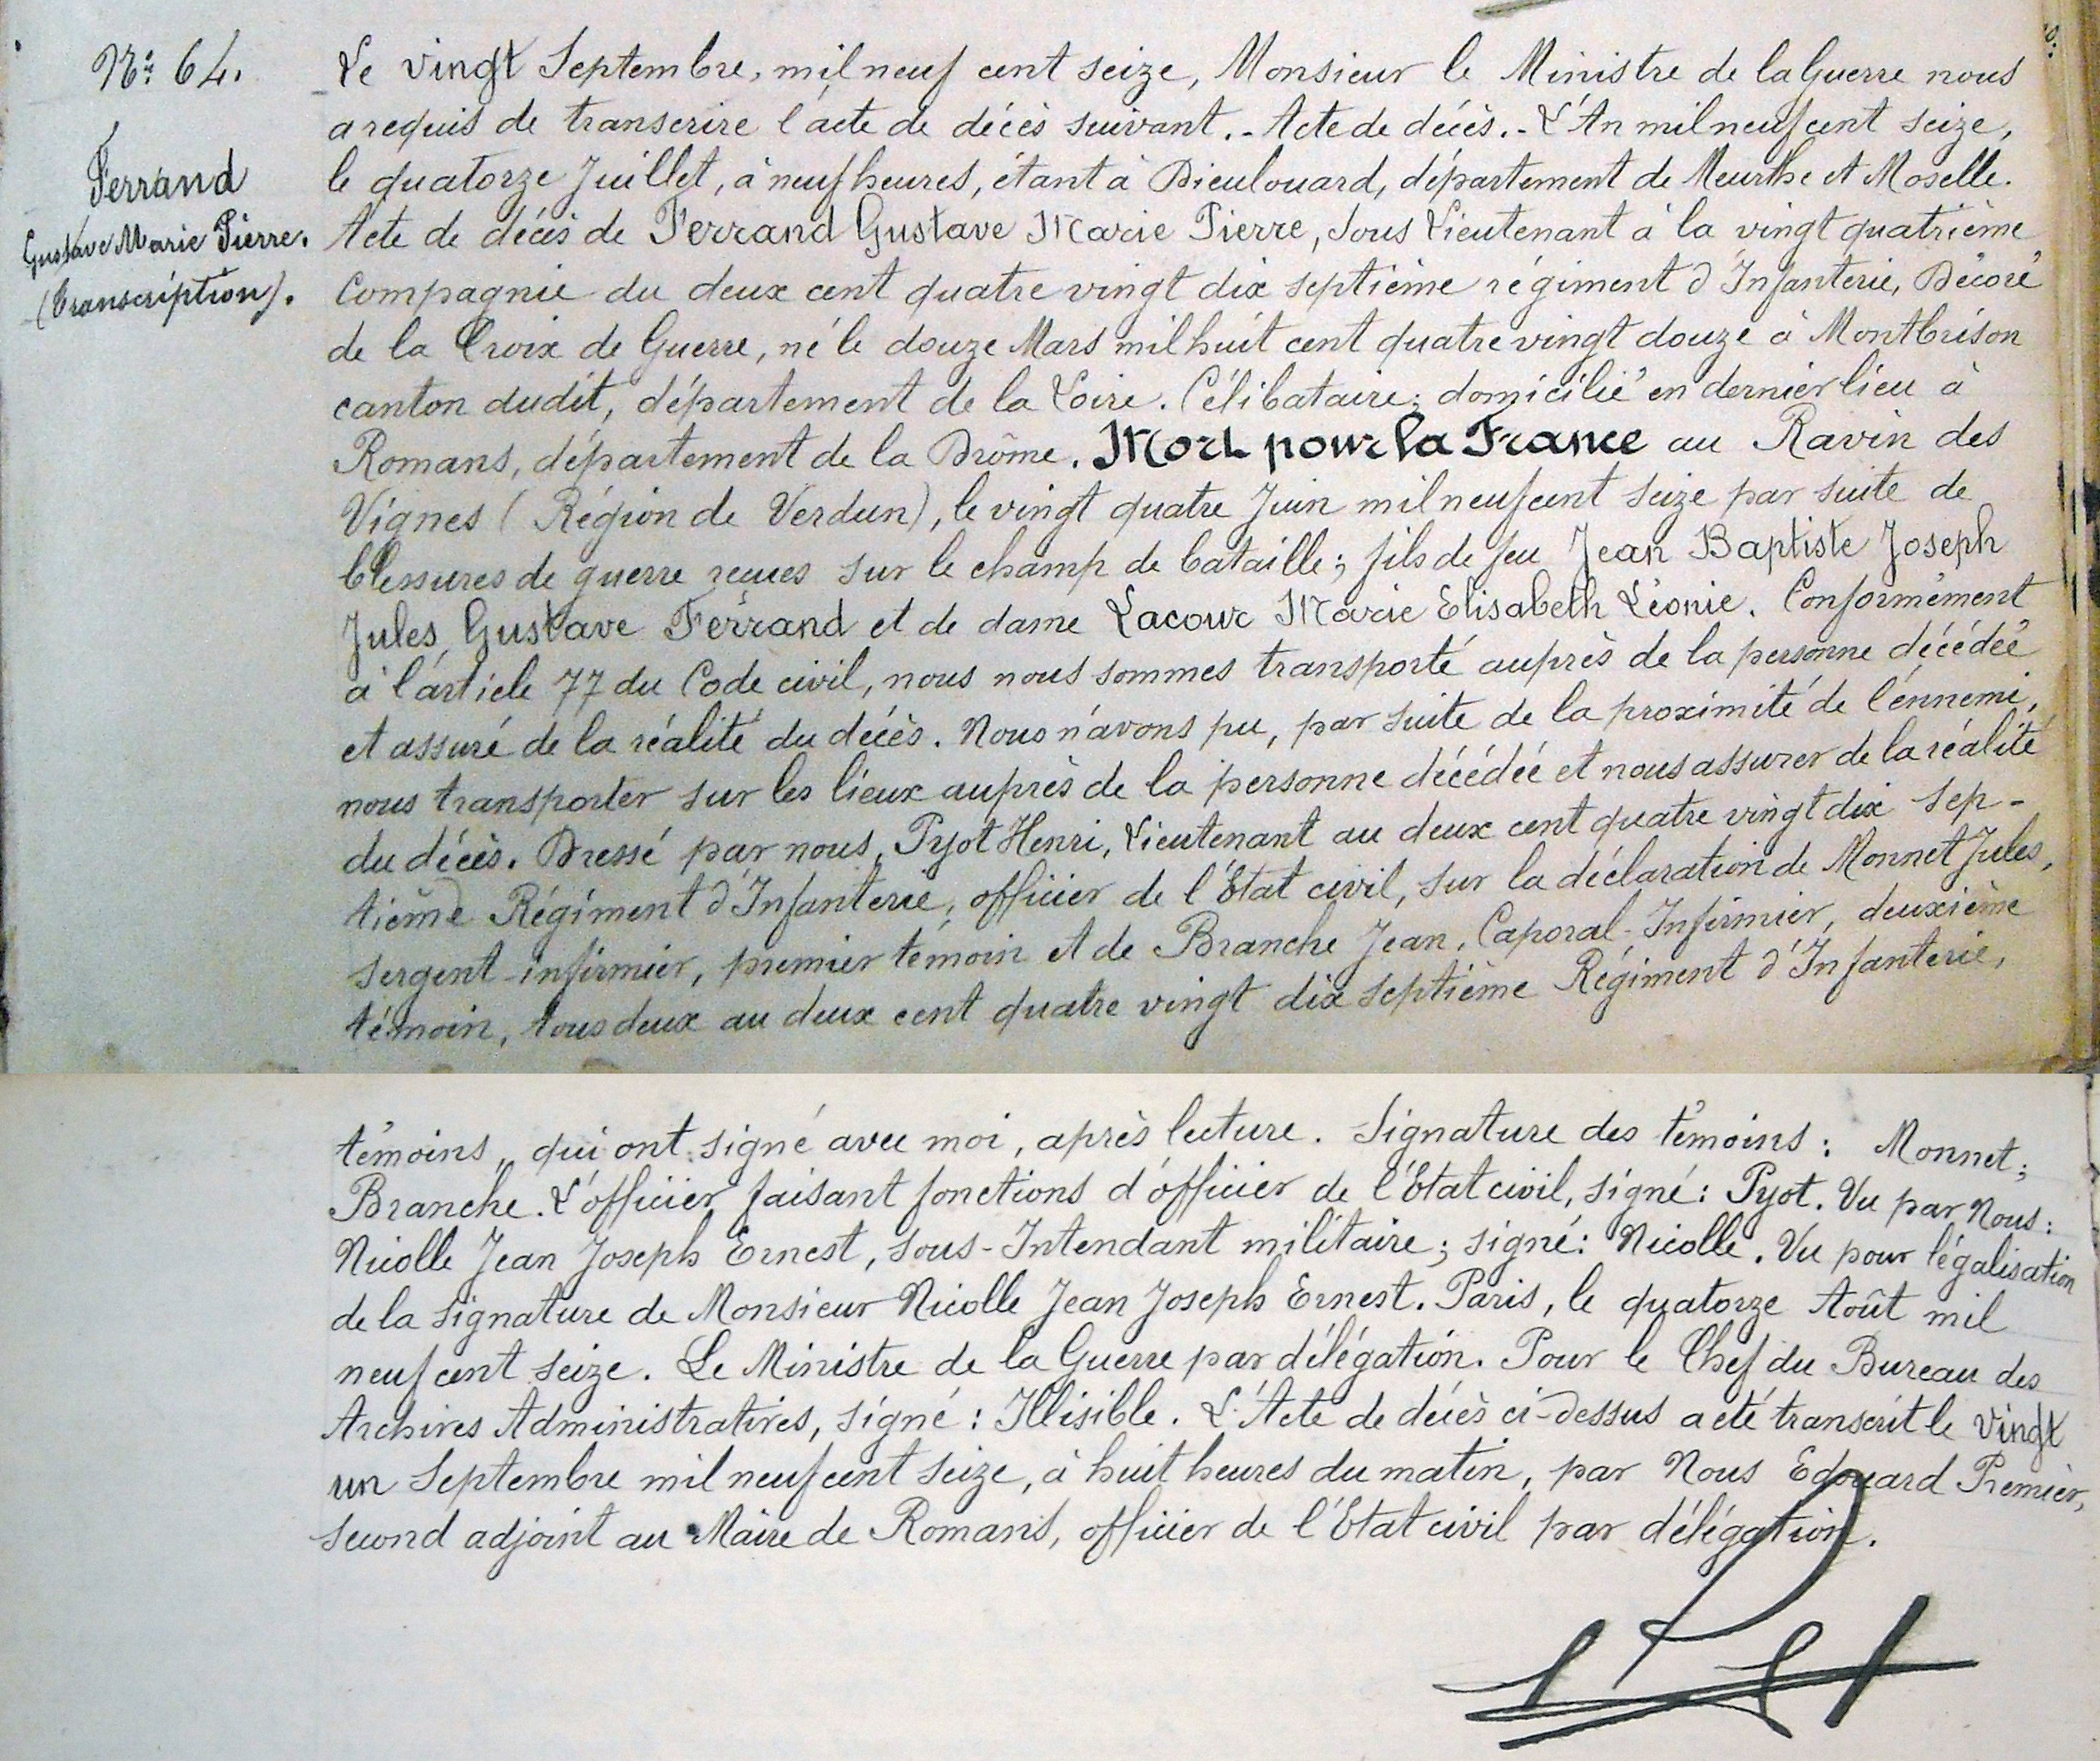 N° 64.
Ferrand
Gustave Marie Pierre.
(Transcription).
Le vingt Septembre, mil neuf cent seize, Monsieur le Ministre de la Guerre nous
a requis de transcrire l'acte de décès suivant. - Acte de décès. - L'An mil neuf cent seize,
le quatorze Juillet, à neuf heures, étant à Dieulouard, département de Meurthe et Moselle.
Acte de décès de Ferrand Gustave Marie Pierre, Sous Lieutenant à la vingt quatrième
Compagnie du deux cent quatre vingt dix septième régiment d'Infanterie, Décoré
de la Croix de Guerre, né le douze Mars mil huit cent quatre vingt douze à Montbrison
canton dudit, département de la Loire. Célibataire; domicilié en dernier lieu à
Romans, département de la Drôme. Mort pour la France au Ravin des
Vignes (Région de Verdun), le vingt quatre Juin mil neuf cent seize par suite de
blessures de guerre reçues sur le champ de bataille; fils de feu Jean Baptiste Joseph
Jules Gustave Ferrand et de dame Lacour Marie Elisabeth Léonie. Conformément
à l'article 77 du Code civil, nous nous sommes transporté auprès de la personne décédée
et assuré de la réalité du décès. Nous n'avons pu, par suite de la proximité de l'ennemi,
nous transporter sur les lieux auprès de la personne décédée et nous assurer de la réalité
du décès. Dressé par nous, Pyot Henri, Lieutenant au deux cent quatre vingt dix sep-
tième Régiment d'Infanterie, officier de l'Etat civil, sur la déclaration de Monnet Jules,
sergent-infirmier, premier témoin et de Branche Jean, Caporal-Infirmier, deuxième
témoin, tous deux au deux cent quatre vingt dix septième Régiment d'Infanterie,
témoins, qui ont signé avec moi, après lecture. Signature des témoins: Monnet;
Branche. L'officier faisant fonctions d'officier de l'Etat civil, signé: Pyot. Vu par Nous:
Nicolle Jean Joseph Ernest, sous-Intendant militaire; signé: Nicolle. Vu pour légalisation
de la signature de Monsieur Nicolle Jean Joseph Ernest. Paris, le quatorze Août mil
neuf cent seize. Le Ministre de la Guerre par délégation. Pour le Chef du Bureau des
Archives Administratives, signé: Illisible. L'Acte de décès ci-dessus a été transcrit le vingt
un Septembre mil neuf cent seize, à huit heures du matin, par Nous Edouard Premier,
second adjoint au Maire de Romans, officier de l'Etat civil par délégation.